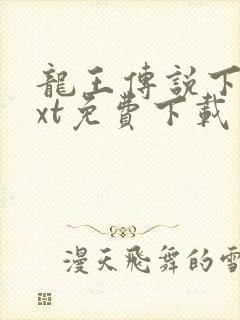 龍王傳説下
xt免費下載
漫天飛舞的雪